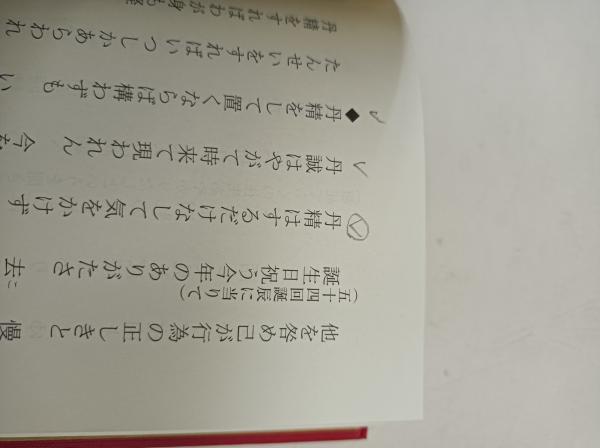 他を咎め己が行為の正しきと　慢
（五十四回誕辰に当りて）
誕生日祝う今年のありがたさ　去
丹精はするだけなして気をかけず
丹誠はやがて時来て現われん　今を
◆丹精をして置くならば構わずも　い
たんせいをすればいつしかあらわれ
丹精をすればわが身も